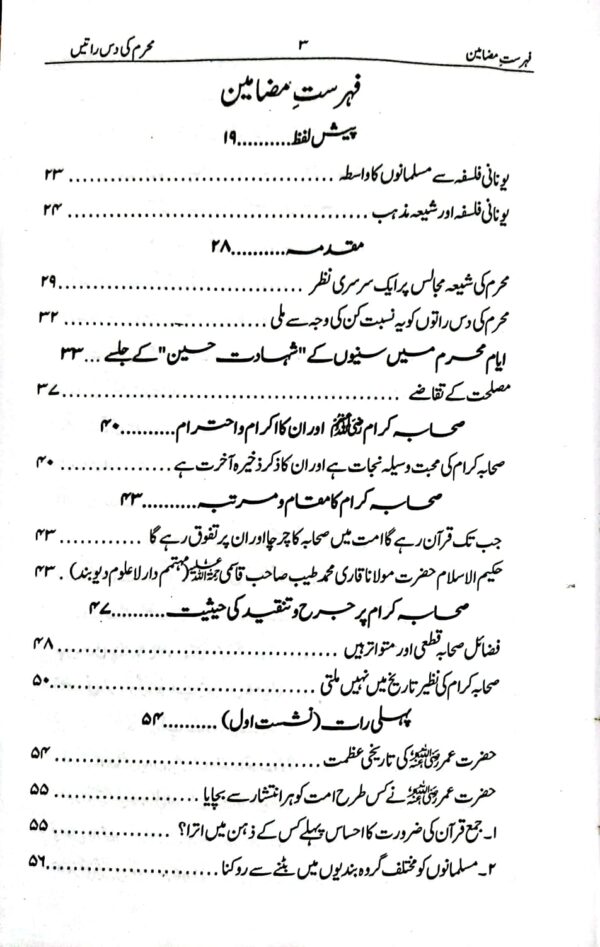 فہرست مضامین ۳ محرم کی دس راتیں
فہرستِ مضامین
پیش لفظ..........۱۹
یونانی فلسفہ سے مسلمانوں کا واسطہ ..................................... ۲۳
یونانی فلسفہ اور شیعہ مذہب ..................................... ۲۴
مقدمہ..........۲۸
محرم کی شیعہ مجالس پر ایک سرسری نظر ..................................... ۲۹
محرم کی دس راتوں کو یہ نسبت کن کی وجہ سے ملی .......................... ۳۲
ایام محرم میں سنیوں کے "شہادت حسین" کے جلسے ... ۳۳
مصلحت کے تقاضے ..................................... ۳۷
صحابہ کرام رضی اللہ عنہم اور ان کا اکرام و احترام..........۴۰
صحابہ کرام کی محبت وسیلہ نجات ہے اور ان کا ذکر ذخیرہ آخرت ہے .............. ۴۰
صحابہ کرام کا مقام و مرتبہ..........۴۳
جب تک قرآن رہے گا امت میں صحابہ کا چرچا اور ان پر تفوق رہے گا ............ ۴۳
حکیم الاسلام حضرت مولانا قاری محمد طیب صاحب قاسمی رحمۃ اللہ علیہ (مہتمم دارلاعلوم دیوبند) . ۴۳
صحابہ کرام پر جرح و تنقید کی حیثیت..........۴۷
فضائل صحابہ قطعی اور متواتر ہیں ..................................... ۴۸
صحابہ کرام کی نظیر تاریخ میں نہیں ملتی .....................................۵۰
پہلی رات (نشست اول) ..........۵۴
حضرت عمر رضی اللہ عنہ کی تاریخی عظمت ..................................... ۵۴
حضرت عمر رضی اللہ عنہ نے کس طرح امت کو ہر انتشار سے بچایا ....................... ۵۵
۱۔ جمع قرآن کی ضرورت کا احساس پہلے کس کے ذہن میں اترا؟ ................. ۵۵
۲۔ مسلمانوں کو مختلف گروہ بندیوں میں بٹنے سے روکنا .........................۵۶